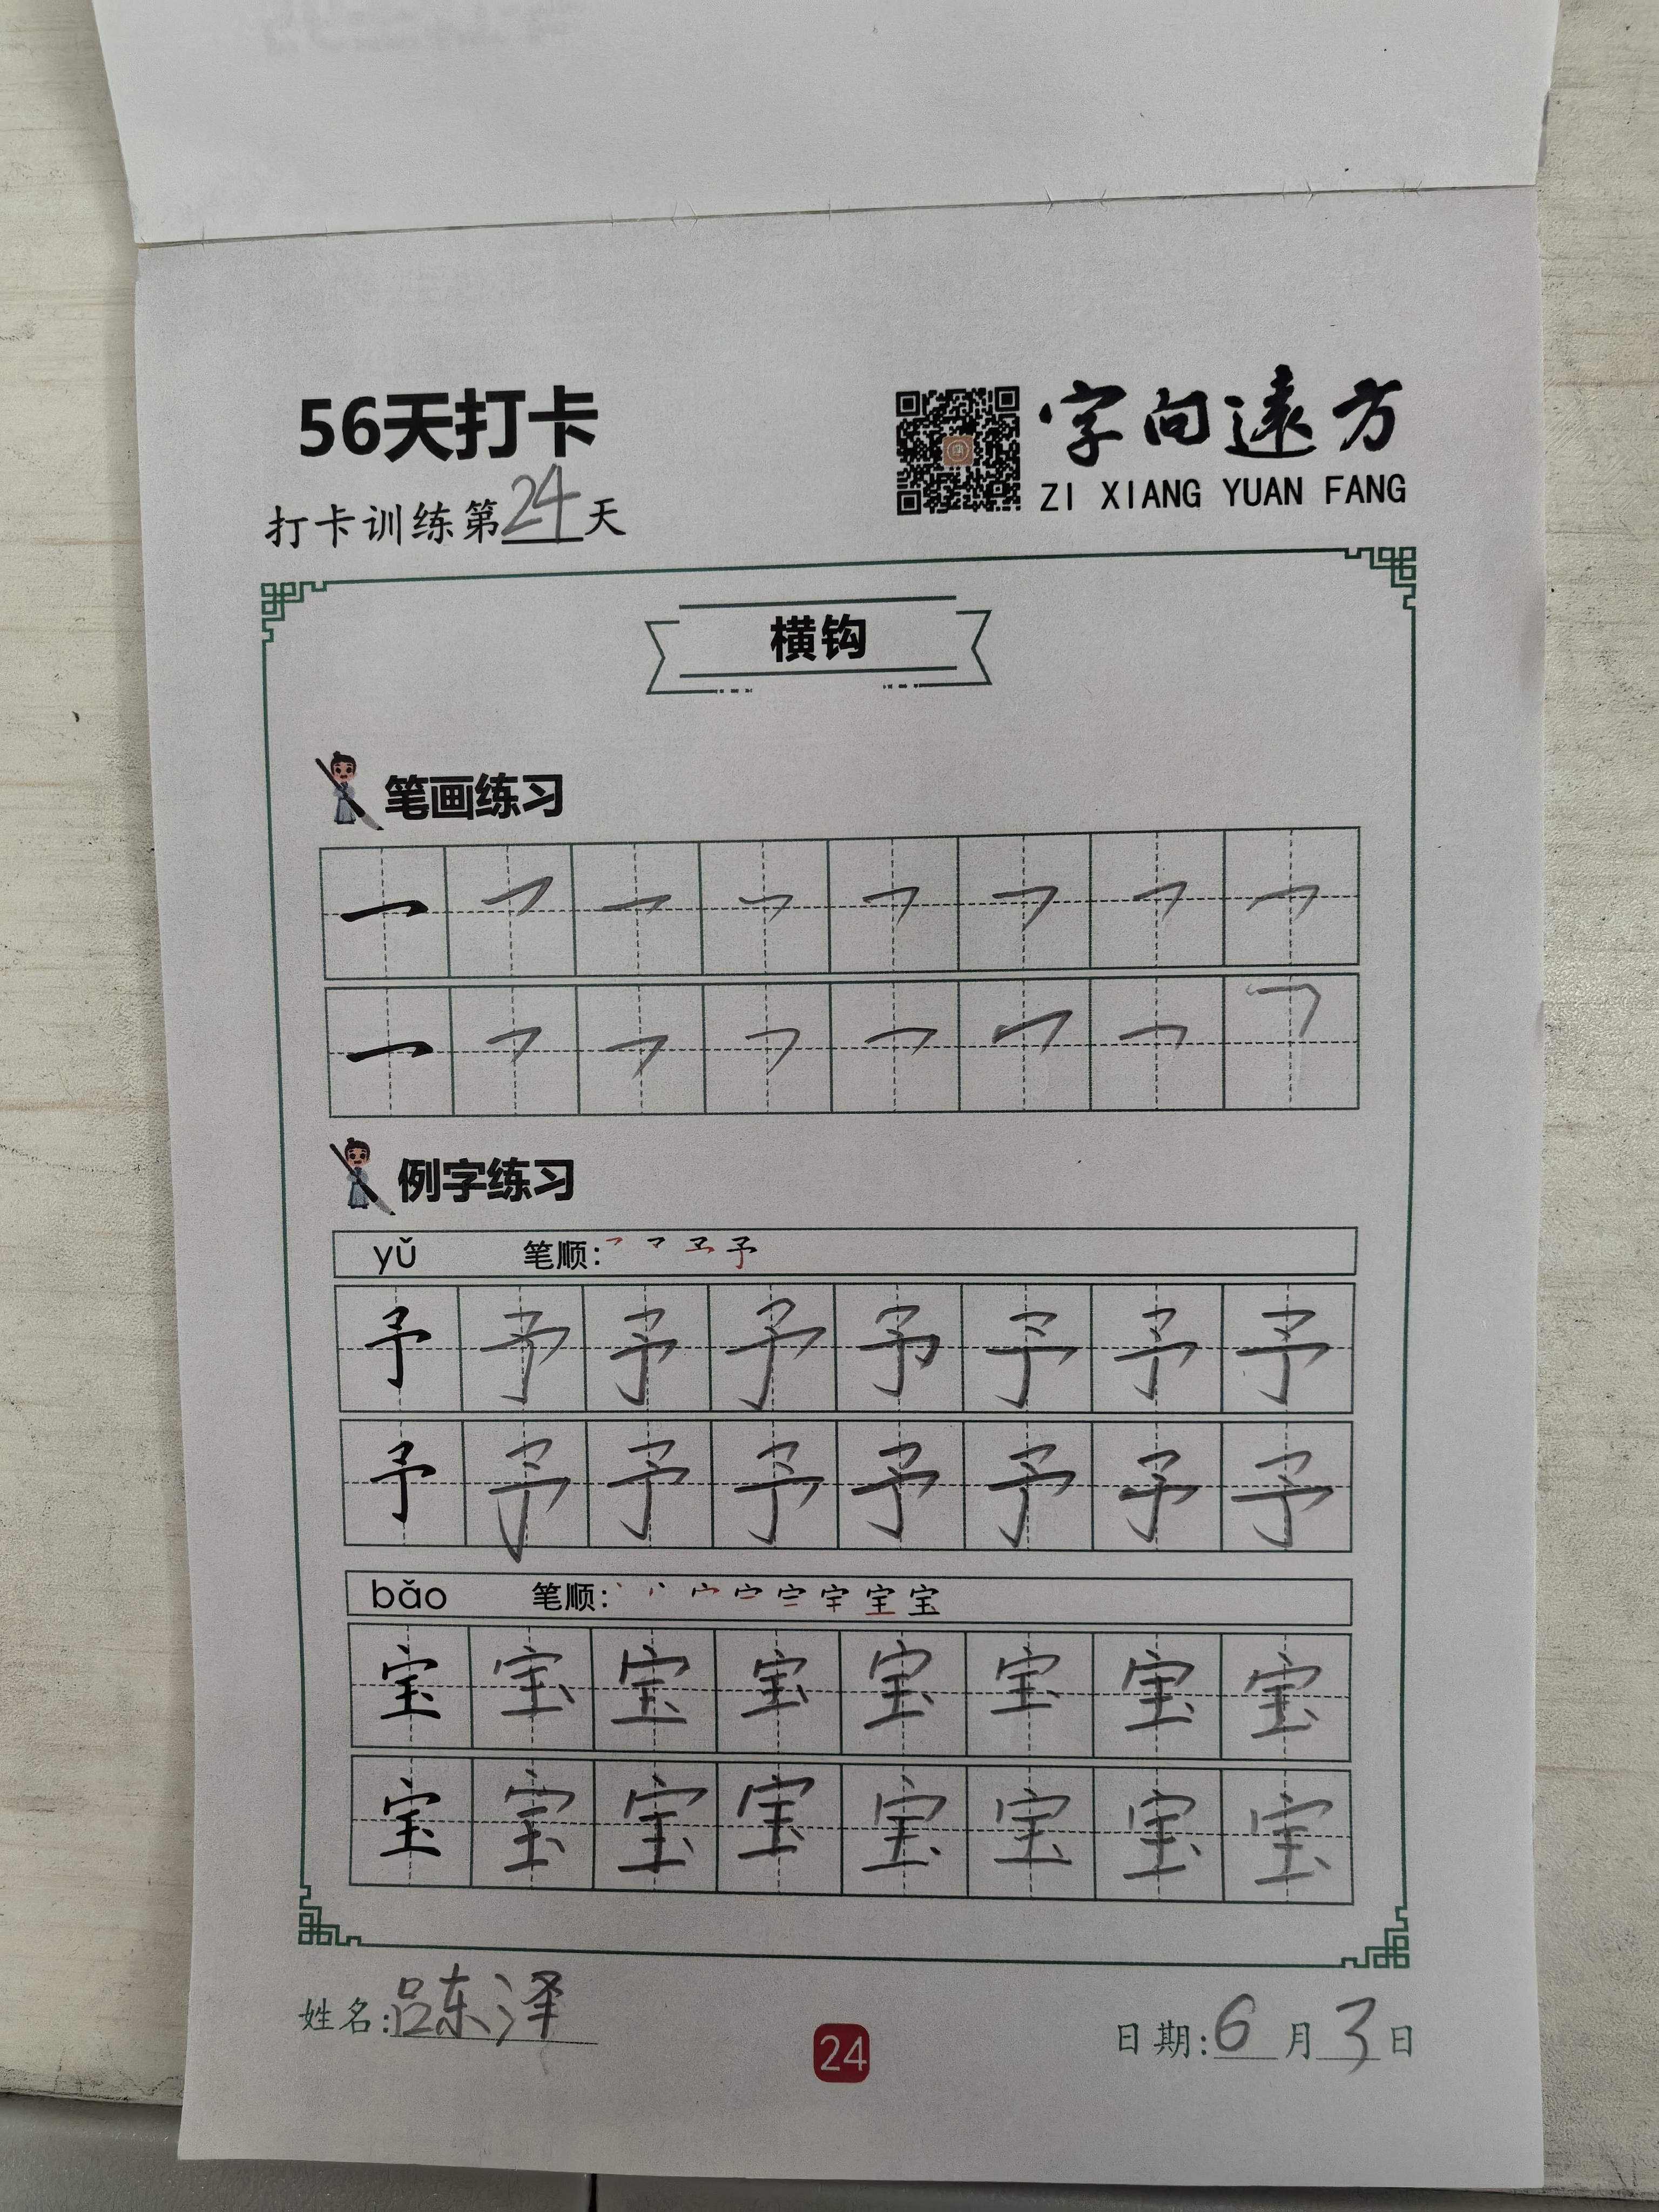 56天打卡
字向遠方
ZI XIANG YUAN FANG
打卡训练第24天
横钩
笔画练习
例字练习
yǔ 笔顺: 予
予 予 予 予 予 予 予 予
予 予 予 予 予 予 予 予
bǎo 笔顺: 宝
宝 宝 宝 宝 宝 宝 宝 宝
宝 宝 宝 宝 宝 宝 宝 宝
姓名:吕东泽
24
日期:6月3日